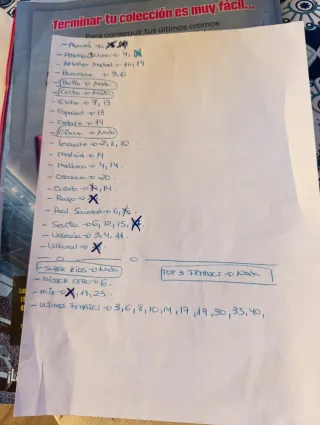 Terminar tu colección es muy fácil...
Para conseguir tus últimos cromos
- Atletico Madrid → 16, 19
- Barcelona → 3, 6
- Betis → Nada
- Celta → Nada
- Elche → 7, 13
- Español → 13
- Getafe → 19
- Girona → Nada
- Levante → 2, 8, 10.
- Madrid → 14
- Mallorca → 4, 14.
- Osasuna → 20.
- Oviedo → 14.
- Rayo →
- Real Sociedad → 6,
- Sevilla → 6, 12, 15,
- Valencia → 3, 4, 11.
- Villarreal →
- SUPER KIDS → Nada
TOP 3 FICHAJES → Nada
→ 6.
- mix → 18, 23.
- ULTIMOS FICHAJES → 3, 6, 8, 10, 14, 17, 19, 30, 33, 40,